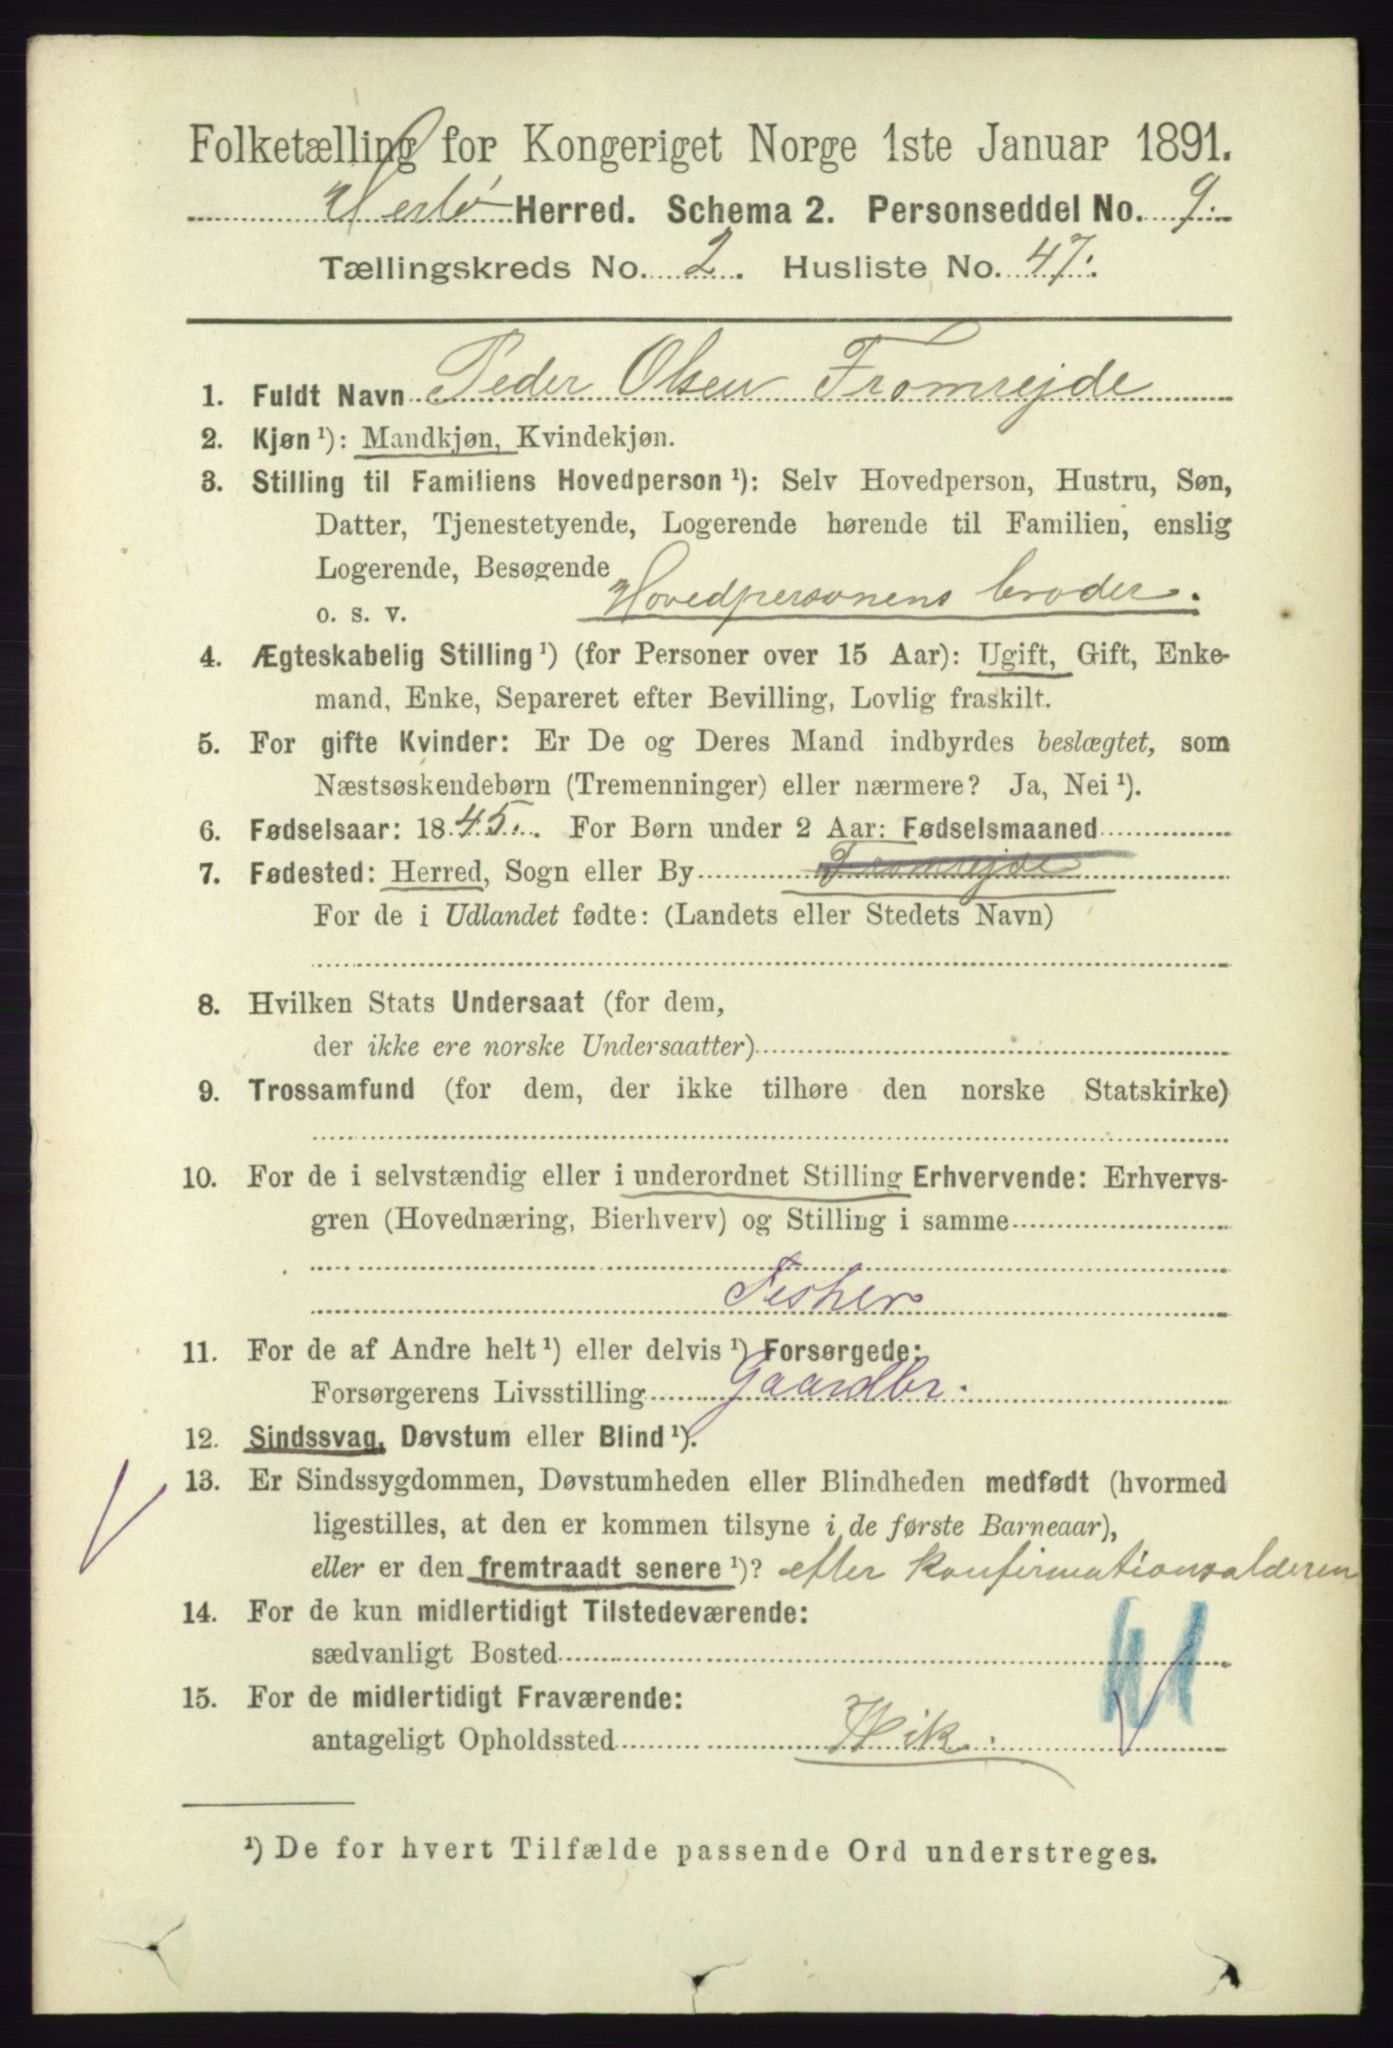 Folketælling for Kongeriget Norge 1ste Januar 1891.
Herlø Herred. Schema 2. Personseddel No. 9.
Tællingskreds No. 2. Husliste No. 47.
1. Fuldt Navn Peder Olsen Fromrejde
2. Kjøn ¹): Mandkjøn, Kvindekjøn.
3. Stilling til Familiens Hovedperson ¹): Selv Hovedperson, Hustru, Søn,
Datter, Tjenestetyende, Logerende hørende til Familien, enslig
Logerende, Besøgende
o. s. v. Hovedpersonens broder.
4. Ægteskabelig Stilling ¹) (for Personer over 15 Aar): Ugift, Gift, Enke-
mand, Enke, Separeret efter Bevilling, Lovlig fraskilt.
5. For gifte Kvinder: Er De og Deres Mand indbyrdes beslægtet, som
Næstsøskendebørn (Tremenninger) eller nærmere? Ja, Nei ¹).
6. Fødselsaar: 1845. For Børn under 2 Aar: Fødselsmaaned
7. Fødested: Herred, Sogn eller By Fromrejde
For de i Udlandet fødte: (Landets eller Stedets Navn)
8. Hvilken Stats Undersaat (for dem,
der ikke ere norske Undersaatter)
9. Trossamfund (for dem, der ikke tilhøre den norske Statskirke)
10. For de i selvstændig eller i underordnet Stilling Erhvervende: Erhvervs-
gren (Hovednæring, Bierhverv) og Stilling i samme
Fisker
11. For de af Andre helt ¹) eller delvis ¹) Forsørgede:
Forsørgerens Livsstilling Gaardbr.
12. Sindssvag, Døvstum eller Blind ¹).
13. Er Sindssygdommen, Døvstumheden eller Blindheden medfødt (hvormed
ligestilles, at den er kommen tilsyne i de første Barneaar),
eller er den fremtraadt senere ¹)? efter konfirmationsalderen
14. For de kun midlertidigt Tilstedeværende:
sædvanligt Bosted
15. For de midlertidigt Fraværende:
antageligt Opholdssted
¹) De for hvert Tilfælde passende Ord understreges.